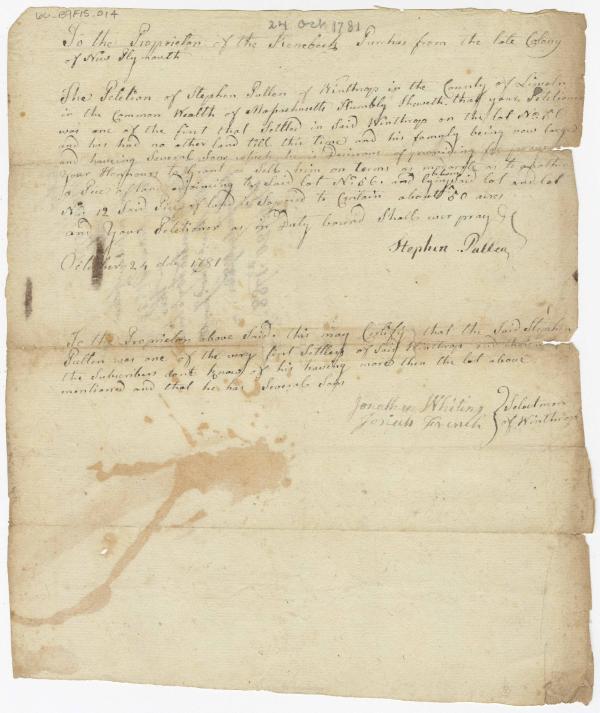 66-B9F15.014
24 Oct 1781
To the Proprietors of the Kenebeck Purchas from the late Colony
of New Plymouth
The Petition of Stephen Pullen of Winthrop in the County of Lincoln
in the Common Wealth of Massachusetts Humbly Sheweth that your Petitioner
was one of the first that Settled in Said Winthrop on the lot No
and has had no other land till this time and his famyly being now larged
and haveing Several Sons which he is Desirous of provideing for prays
your Honnours to grant or Sell him on terms as
a Pec of land adjoining to Said lot No 86 and lying between said lot and lot
No 12 Said Pec of land is Soposed to Contain about 50 acres
and Your Petitioner as in Duty bound Shall ever pray
Stephen Pullen
October 24 day 1781
To the Proprietors above Said this may Certify that the Said Stephen
Pullen was one of the very first Settlers of Said Winthrop and
the Subscribers dont know of his haveing more then the lot above
mentioned and that he has Severale Sons
Jonathan Whiting
Josiah French
Selectmen
of Winthrop